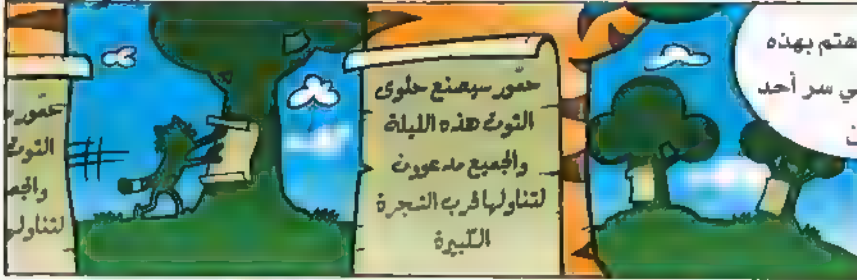 هتم بهذه
ي سر أحد
ت
حمّور سيصنع حلوى
التوت هذه الليلة
والجميع مدعوون
لتناولها قرب الشجرة
الكبيرة
حمّور س
التوت
والجم
لتناوله